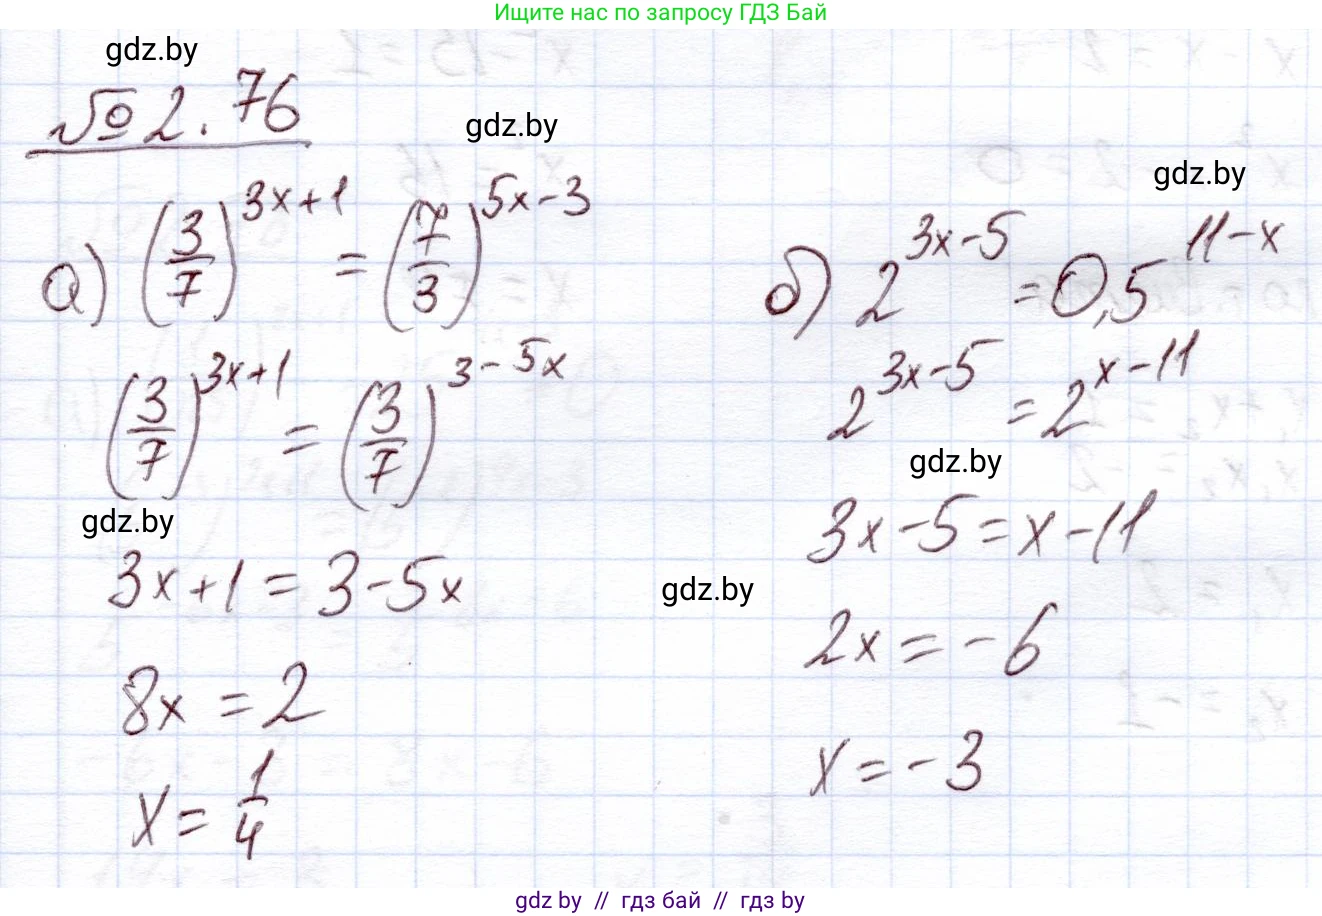 Ищите нас по запросу ГДЗ Бай
gdz.by
№ 2.76
gdz.by
gdz.by
а) (3/7)^(3x+1) = (7/3)^(5x-3)
(3/7)^(3x+1) = (3/7)^(3-5x)
gdz.by
3x+1=3-5x
8x=2
x=1/4
б) 2^(3x-5) = 0,5^(11-x)
2^(3x-5) = 2^(x-11)
gdz.by
3x-5=x-11
gdz.by
2x=-6
x=-3
gdz by // гдз бай // гдз by